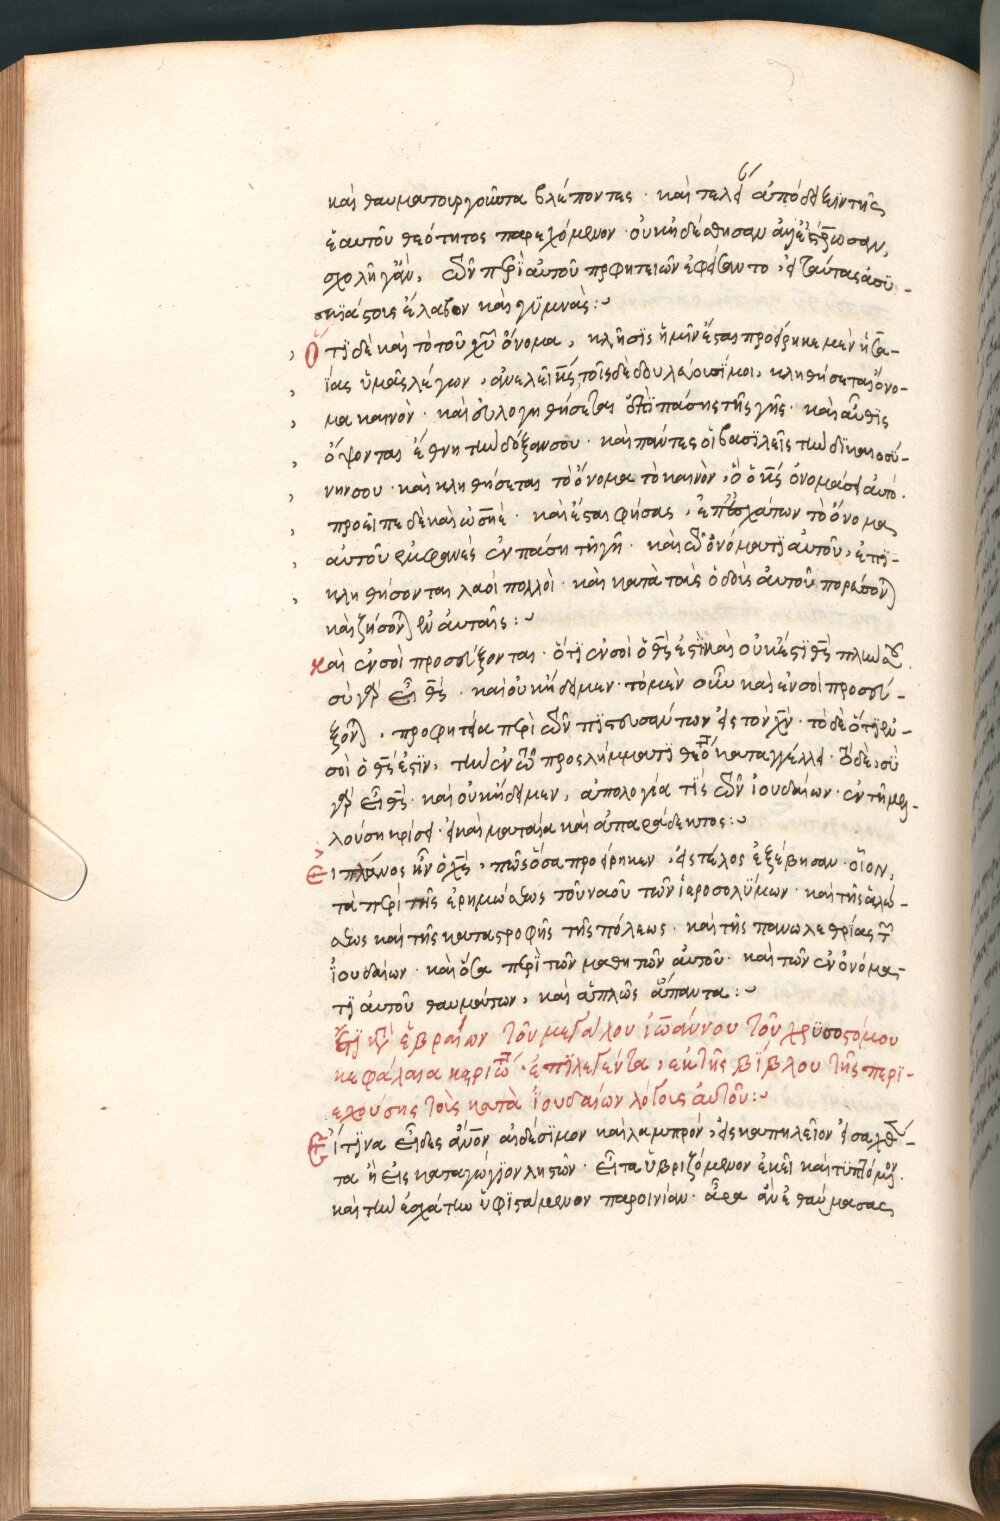 καὶ θαυματουργοῦντα βλέποντες · καὶ τελεί ἀπόδειξιν τῆς
ἑαυτοῦ θεότητος παρεχόμενον · οὐκ ἠδέσθησαν ἀλλ' ἐσταύρωσαν,
σχολῆ γὰρ ὧν περὶ αὐτοῦ προφητειῶν ἐφείσαντο, εἰ ταύτας ἀσυ-
σκιάστοις ἔλαβον καὶ γυμνάς :
Ὅτι δὲ καὶ τὸ τοῦ χυ ὄνομα, κλῆσις ἡμῖν ἔσται προείρηκε μὲν ἡσα-
ίας ὑμᾶς λέγων, ἀνελεῖ κς, τοῖς δὲ δουλεύουσί μοι, κληθήσεται ὄνο-
μα καινὸν · καὶ εὐλογηθήσεται ἐπὶ πάσης τῆς γῆς · καὶ αὖθις
ὄψονται ἔθνη τὴν δόξαν σου · καὶ πάντες οἱ βασιλεῖς τὴν δικαιοσύ-
νην σου · καὶ κληθήσεται τὸ ὄνομα τὸ καινὸν, ὃ ὁ κς ὀνομάσει αὐτό ·
προεῖπε δὲ καὶ ὠσηὲ · καὶ ἔσται φήσας, ἐπ' ἐσχάτων τὸ ὄνομα
αὐτοῦ ἐμφανὲς ἐν πάση τῆ γῆ · καὶ ἐν ὀνόματι αὐτοῦ, ἐπι-
κληθήσονται λαοὶ πολλοὶ · καὶ κατὰ τὰς ὁδοὺς αὐτοῦ πορεύσον)
καὶ ζήσον) ἐν αὐταῖς :
καὶ ἐν σοὶ προσεύξονται · ὅτι ἐν σοὶ ὁ θς ἐστὶ καὶ οὐκ ἔστι θς πλὴν σοῦ ·
σὺ γὰρ εἶ θς · καὶ οὐκ ἤδειμεν · τὸ μὲν οὖν καὶ ἐν σοὶ προσεύ-
ξον), προφητεία περὶ τῶν πιστευσάντων εἰς τὸν χν · τὸ δὲ ὅτι ἐν
σοὶ ὁ θς ἐστὶν, τὴν ἐν τῶ προσλήμματι θεότητα καταγγέλλει · τὸ δὲ, σὺ
γὰρ εἶ θς · καὶ οὐκ ἤδειμεν, ἀπολογία τίς τῶν ἰουδαίων · ἐν τῆ μελ-
λούση κρίσει · εἰ καὶ ματαία καὶ ἀπαράδεκτος :
Εἰ πλάνος ἦν ὁ χς, πῶς ὅσα προείρηκεν, εἰς τέλος ἐξέβησαν · οἷον,
τὰ περὶ τῆς ἐρημώσεως τοῦ ναοῦ τῶν ἱεροσολύμων · καὶ τῆς ἁλώ-
σεως καὶ τῆς καταστροφῆς τῆς πόλεως · καὶ τῆς πανωλεθρίας τῶν
ἰουδαίων · καὶ ὅσα περὶ τῶν μαθητῶν αὐτοῦ · καὶ τῶν ἐν ὀνόμα-
τι αὐτοῦ θαυμάτων, καὶ ἁπλῶς ἅπαντα :
Ἔτι κατὰ ἑβραίων τοῦ μεγάλου ἰωάννου τοῦ χρυσοστόμου
κεφάλαια κεριστω · ἐπιλεγέντα, ἐκ τῆς βίβλου τῆς περι-
εχούσης τοὺς κατὰ ἰουδαίων λόγους αὐτοῦ :
Εἴ τινα εἶδες ἄνον αἰδέσιμον καὶ λαμπρόν, εἰς καπηλεῖον εἰσαχθέν-
τα ἢ εἰς καταγώγιον ληστῶν · εἶτα ὑβριζόμενον ἐκεῖ καὶ τυπτόμεν ·
καὶ τὴν ἐσχάτην ὑφιστάμενον παροινίαν · ἆρα ἂν ἐθαύμασας